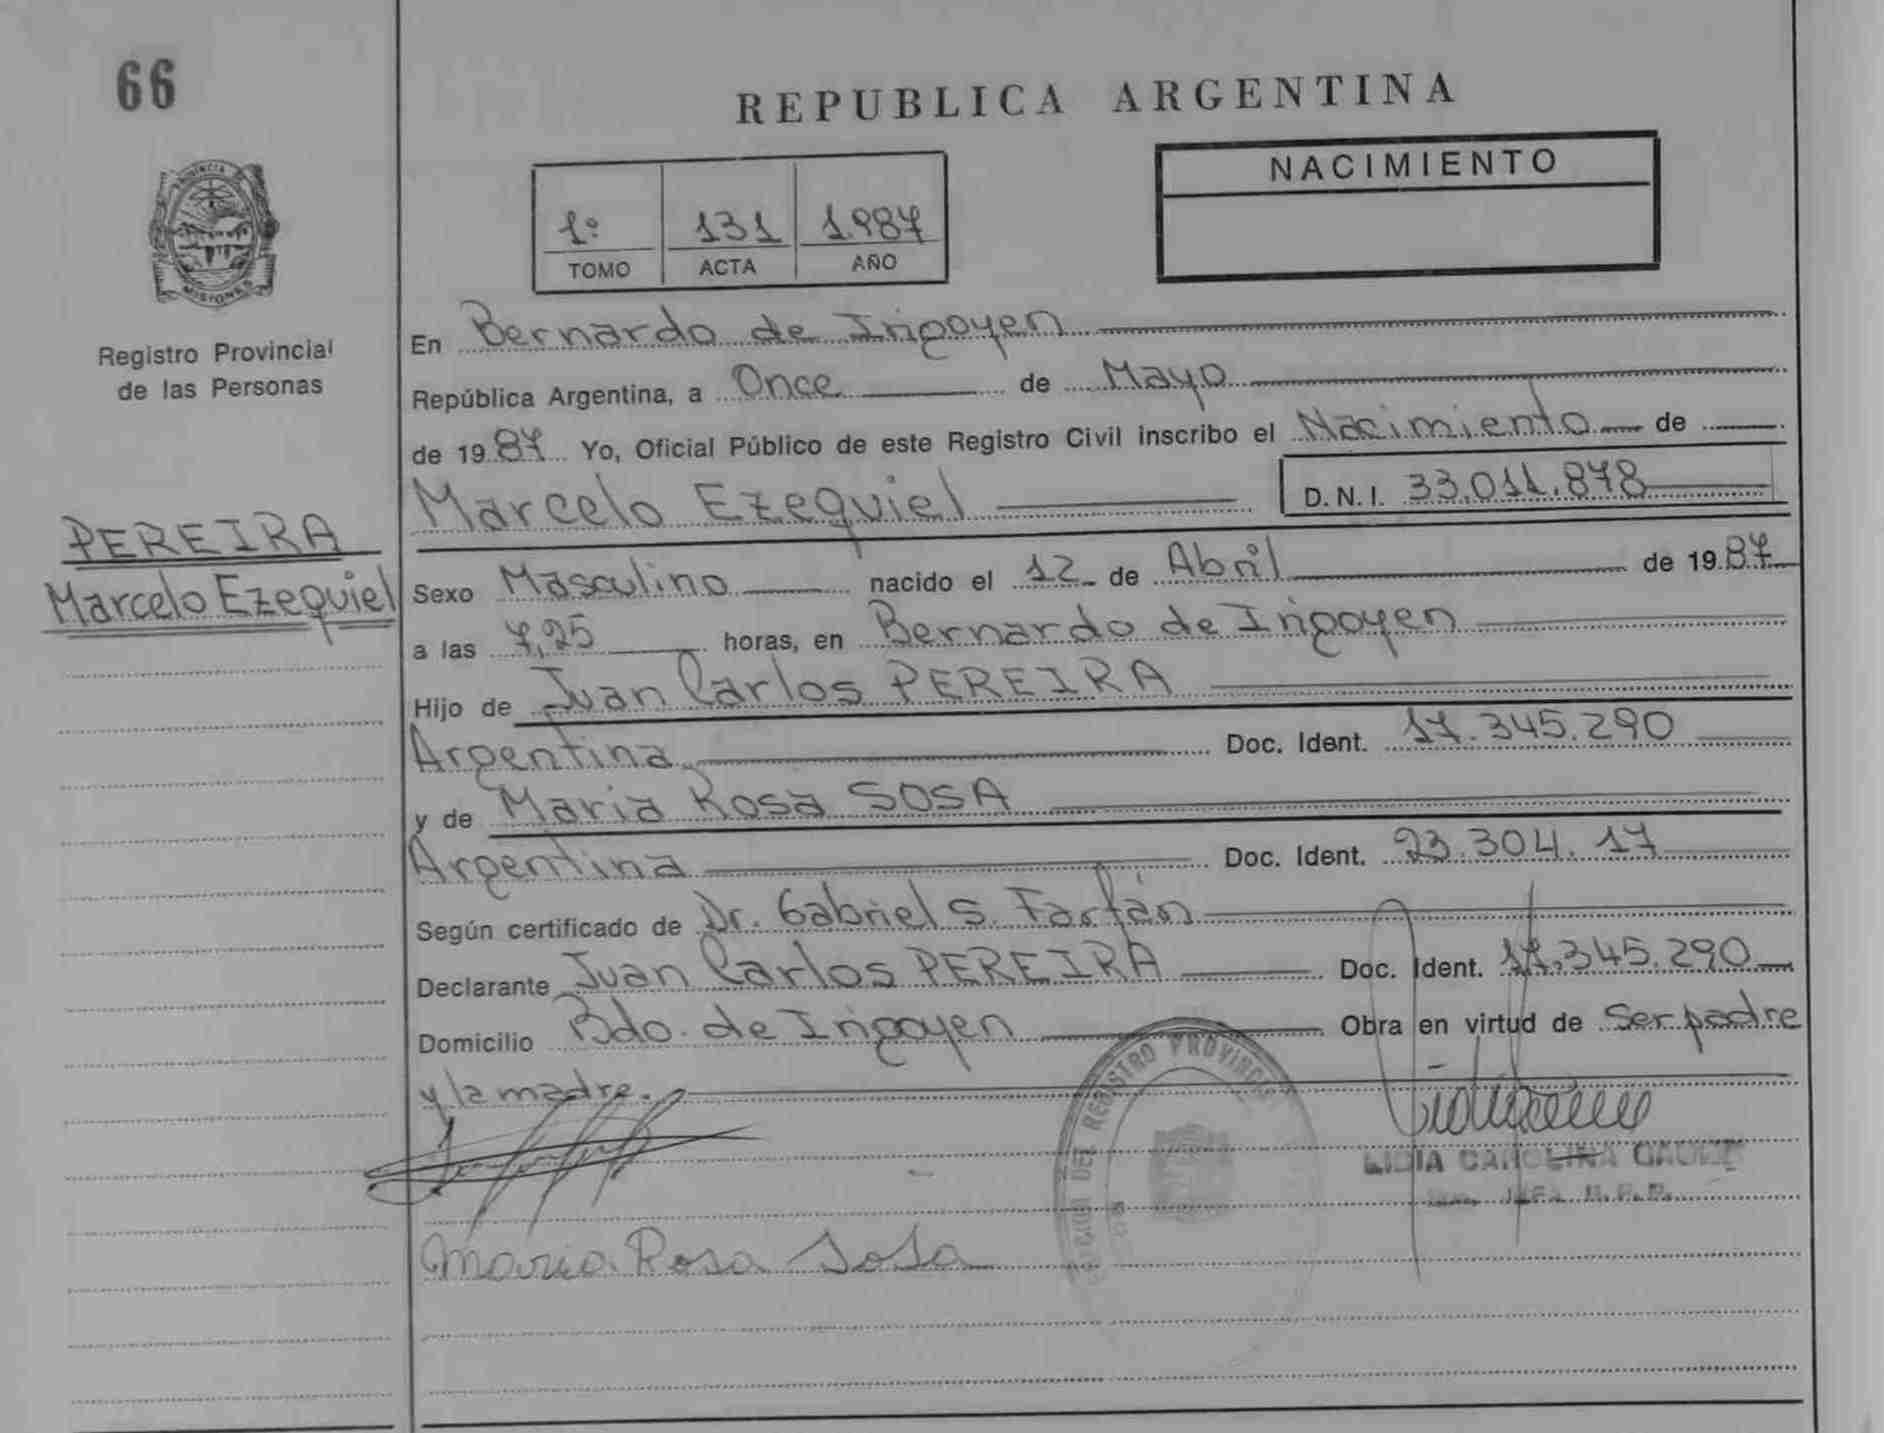 66
REPUBLICA ARGENTINA
NACIMIENTO
1º 131 1.987
TOMO ACTA AÑO
PROVINCIA
MISIONES
Registro Provincial
de las Personas
PEREIRA
Marcelo Ezequiel
En Bernardo de Irigoyen
República Argentina, a Once de Mayo
de 1987 Yo, Oficial Público de este Registro Civil inscribo el Nacimiento de
Marcelo Ezequiel D.N.I. 33.011.878
Sexo Masculino nacido el 12 de Abril de 1987
a las 7,25 horas, en Bernardo de Irigoyen
Hijo de Juan Carlos PEREIRA
Argentina Doc. Ident. 17.345.290
y de Maria Rosa SOSA
Argentina Doc. Ident. 23.304.17
Según certificado de Dr. Gabriel S. Farfán
Declarante Juan Carlos PEREIRA Doc. Ident. 17.345.290
Domicilio Bdo. de Irigoyen Obra en virtud de Ser padre
y la madre.
DEL REGISTRO PROVINCIAL
LIDIA CAROLINA
Maria Rosa Sosa